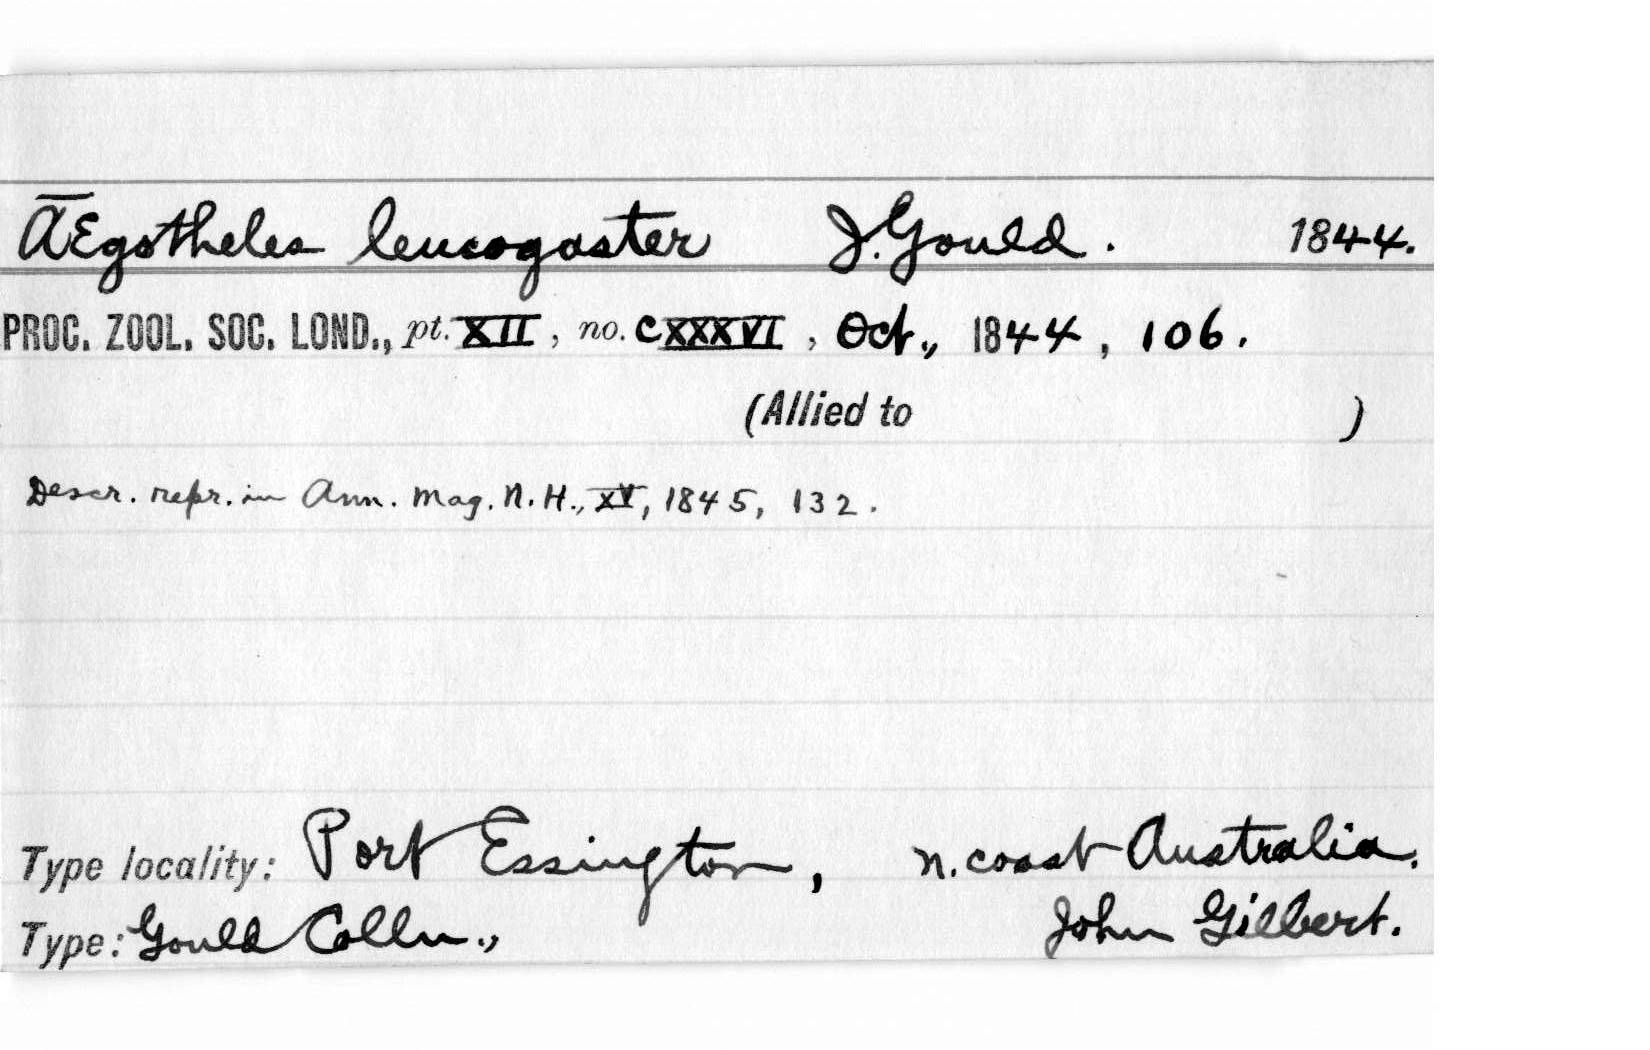 AEgotheles leucogaster J. Gould. 1844.
PROC. ZOOL. SOC. LOND., pt. XII, no. CXXXVI, Oct., 1844, 106.
(Allied to )
Descr. repr. in Ann. Mag. N. H., XV, 1845, 132.
Type locality: Port Essington, n. coast Australia.
Type: Gould Colln., John Gilbert.